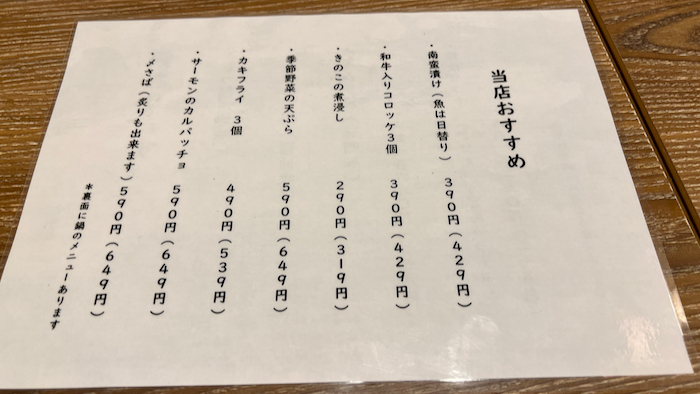 当店おすすめ
・南蛮漬け(魚は日替り) 390円(429円)
・和牛入りコロッケ3個 390円(429円)
・きのこの煮浸し 290円(319円)
・季節野菜の天ぷら 590円(649円)
・カキフライ 3個 490円(539円)
・サーモンのカルパッチョ 590円(649円)
・〆さば(炙りも出来ます)590円(649円)
*裏面に鍋のメニューあります